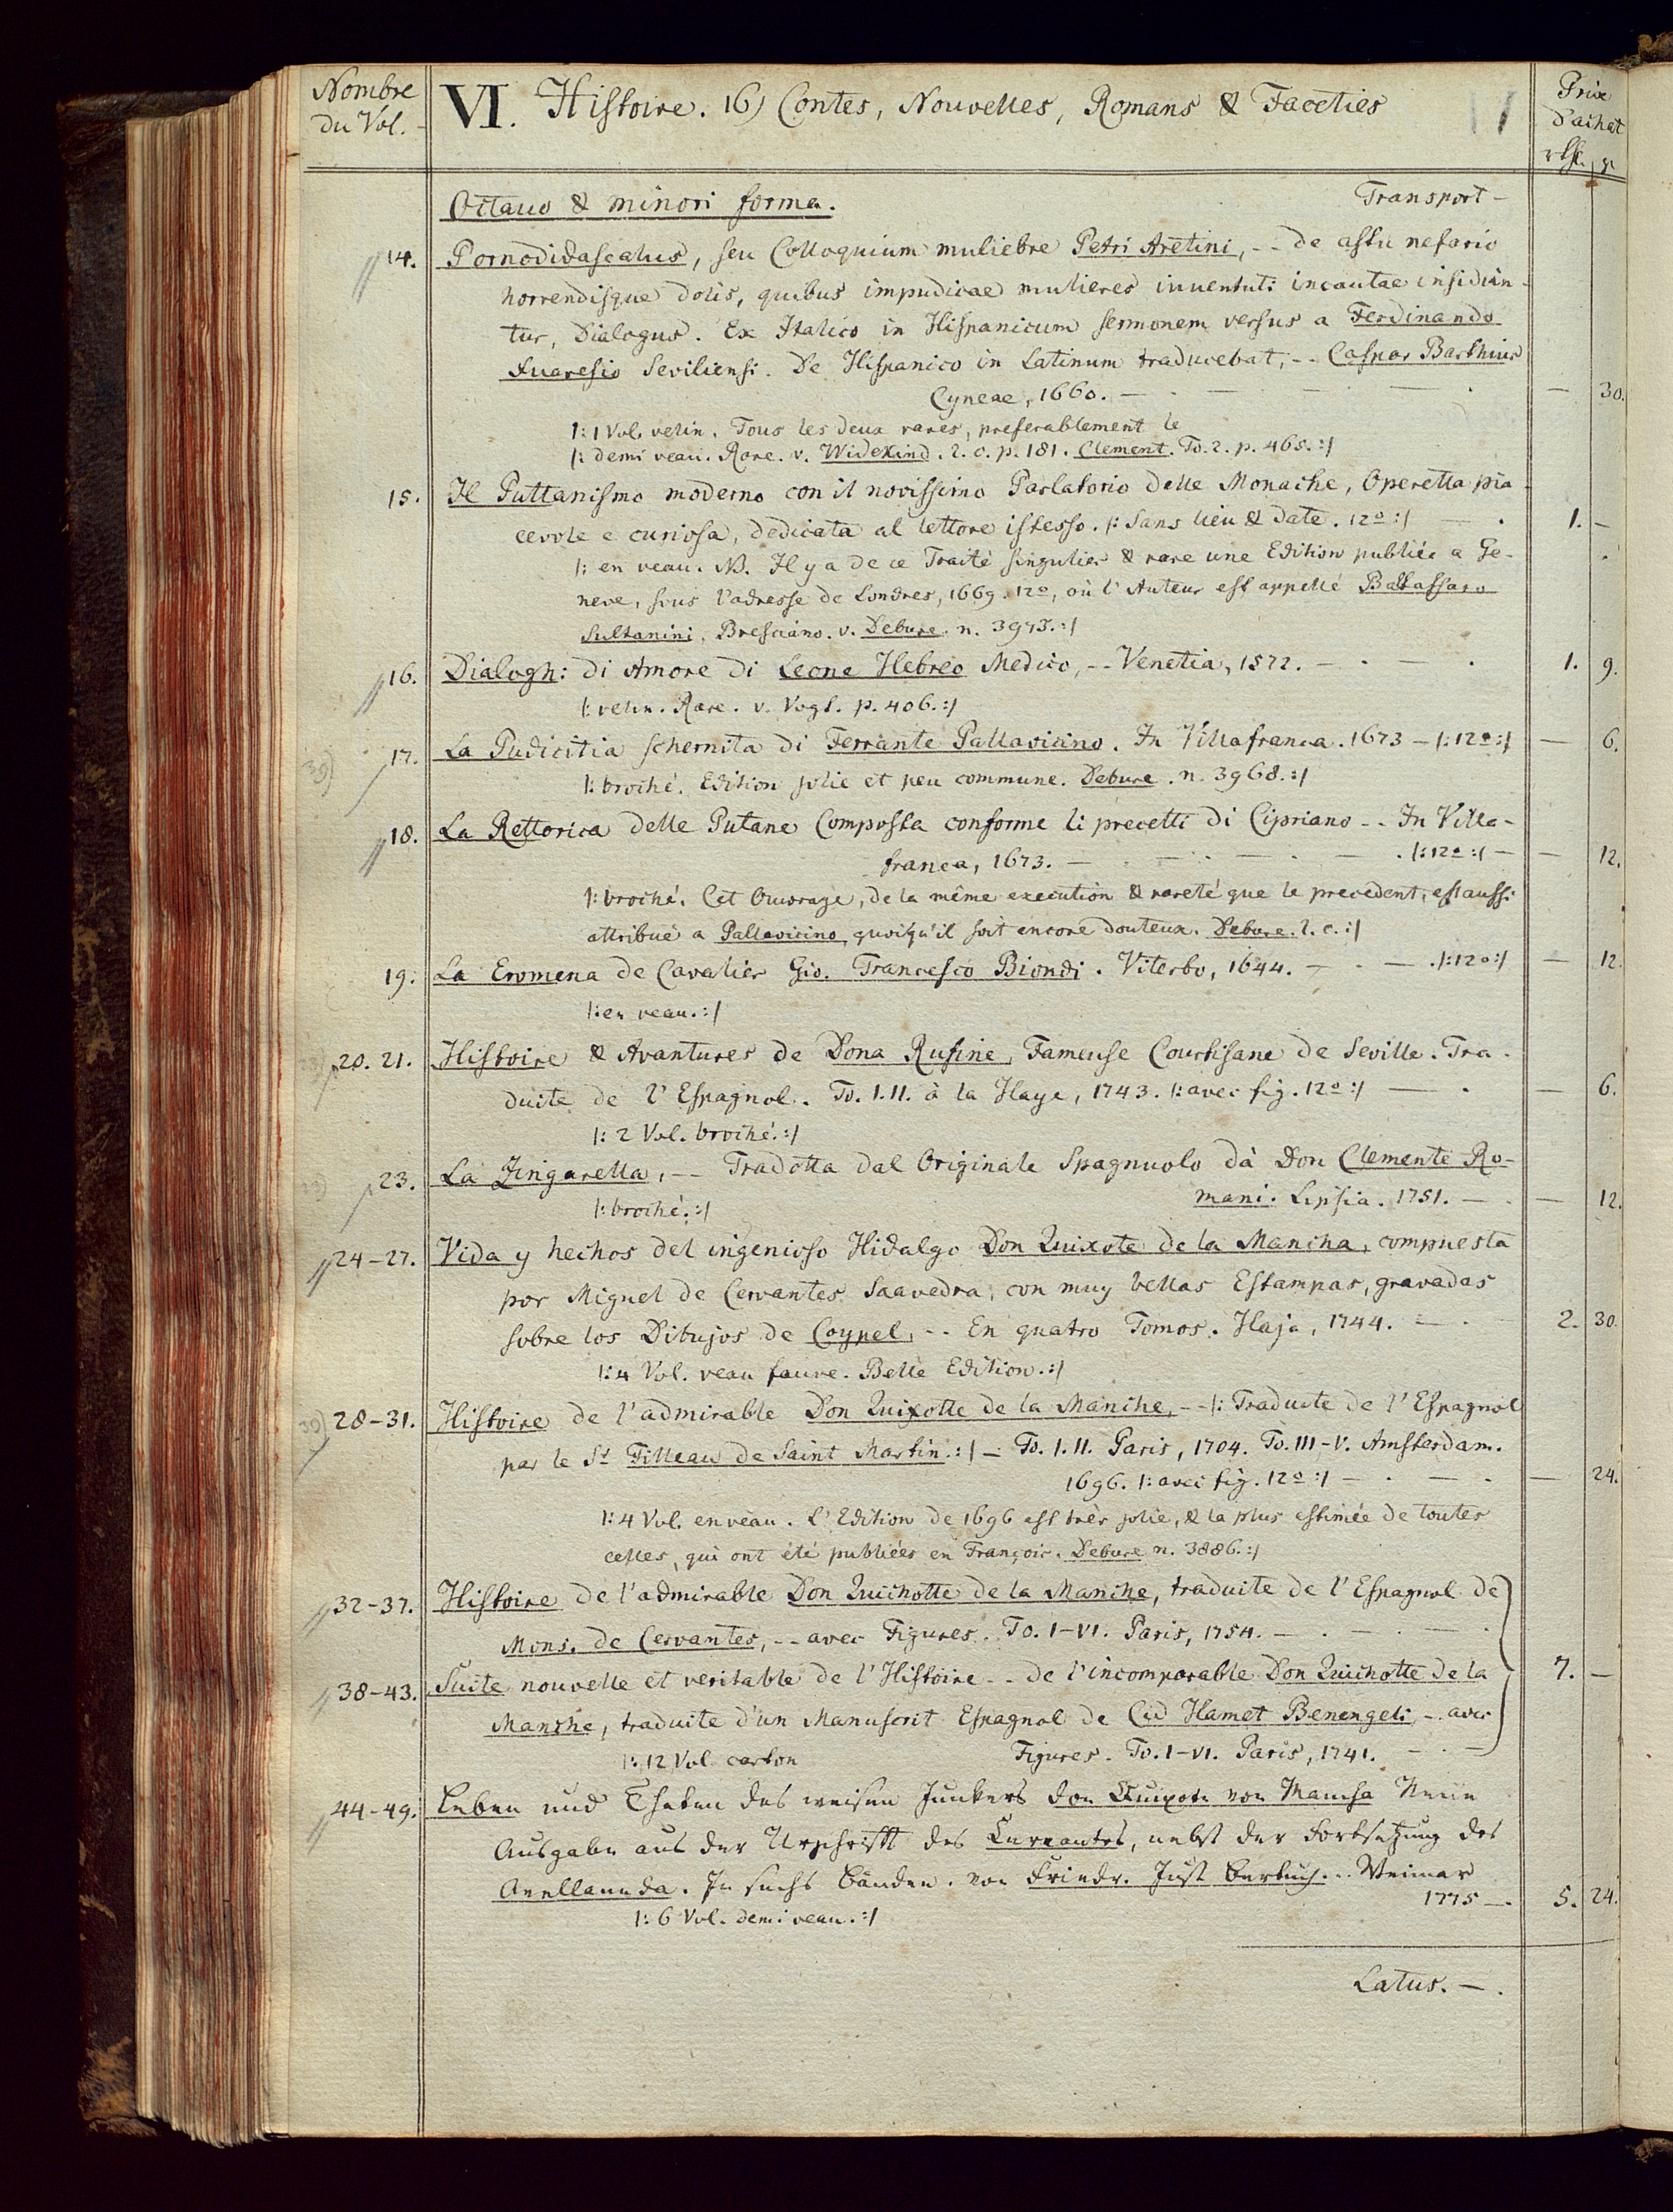 Nombre
du Vol.
VI. Histoire. 16) Contes, Nouvelles, Romans & Faceties
Prix
d'achat
Octauo & minori forma. Transport –
14. Pornodidascalus, seu Colloquium muliebre Petri Aretini, -- de astu nefario
horrendisque dolis, quibus impudicae mulieres iuuentuti incautae insidian-
tur, Dialogus. Ex Italico in Hispanicum sermonem versus a Ferdinando
Suaresio Seviliensi. De Hispanico in Latinum traducebat, -- Caspar Barthius
Cyneae, 1660. — . — — . — 30.
|: 1 Vol. velin. Tous les deux rares, preferablement le
|: demi veau. Rare. v. Widekind. l. c. p. 181. Clement. To. 2. p. 465. :|
15. Il Puttanismo moderno con il novissimo Parlatorio delle Monache, Operetta pia-
cevole e curiosa, dedicata al lettore istesso. |: Sans lieu & date. 12º :| — . 1. —
|: en veau. NB. Il y a de ce Traité singulier & rare une Edition publiée a Ge-
neve, sous l'adresse de Londres, 1669. 12º, où l'Auteur est appellé Baltassaro
Sultanini, Bresciano. v. Debure. n. 3973. :|
16. Dialoghi di Amore di Leone Hebreo Medico, -- Venetia, 1572. — . — . 1. 9.
|: velin. Rare. v. Vogt. p. 406. :|
17. La Pudicitia schernita di Ferrante Pallavicino. In Villafranca. 1673 — |: 12º :| — 6.
|: broché. Edition jolie et peu commune. Debure. n. 3968. :|
18. La Rettorica delle Putane Composta conforme li precetti di Cipriano -- In Villa-
franca, 1673. — . — . — . — . |: 12º :| — — 12.
|: broché. Cet Ouvrage, de la même execution & rareté que le precedent, est aussi
attribué a Pallavicino, quoiqu'il soit encore douteux. Debure. l. c. :|
19. La Eromena de Cavalier Gio. Francesco Biondi. Viterbo, 1644. — . — . |: 12º :| — 12.
|: en veau. :|
20. 21. Histoire & Avantures de Dona Rufine, Fameuse Courtisane de Seville. Tra-
duite de l'Espagnol. To. I. II. à la Haye, 1743. |: avec fig. 12º :| — . — 6.
|: 2 Vol. broché. :|
23. La Zingarella, -- Tradotta dal Originale Spagnuolo dà Don Clemente Ro-
|: broché. :| mani. Lipsia. 1751. — . — 12.
24-27. Vida y hechos del ingenioso Hidalgo Don Quixote de la Mancha, compuesta
por Miguel de Cervantes Saavedra, con muy bellas Estampas, gravadas
sobre los Dibujos de Coypel, -- En quatro Tomos. Haja, 1744. — . — 2. 30.
|: 4 Vol. veau fauve. Belle Edition. :|
28-31. Histoire de l'admirable Don Quixotte de la Manche, -- |: Traduite de l'Espagnol
par le Sr Filleau de Saint Martin. :| — To. I. II. Paris, 1704. To. III-V. Amsterdam.
1696. |: avec fig. 12º :| — . — . — 24.
|: 4 Vol. en veau. L'Edition de 1696 est très jolie, & la plus estimée de toutes
celles, qui ont été publiées en François. Debure n. 3886. :|
32-37. Histoire de l'admirable Don Quichotte de la Manche, traduite de l'Espagnol de
Mons. de Cervantes, -- avec Figures. To. I-VI. Paris, 1754. — . — . — .
38-43. Suite nouvelle et veritable de l'Histoire -- de l'incomparable Don Quichotte de la 7. —
Manche, traduite d'un Manuscrit Espagnol de Cid Hamet Benengeli, -- avec
|: 12 Vol. carton Figures. To. I-VI. Paris, 1741. — . —
44-49. Leben und Thaten des weisen Junkers Don Quixote von Mancha Neue
Ausgabe aus der Urschrifft des Cervantes, nebst der Fortsetzung des
Avellaneda. In sechs Bänden. von Friedr. Just. Bertuch. -- Weimar
|: 6 Vol. demi veau. :| 1775 —. 5. 24.
Latus. — .